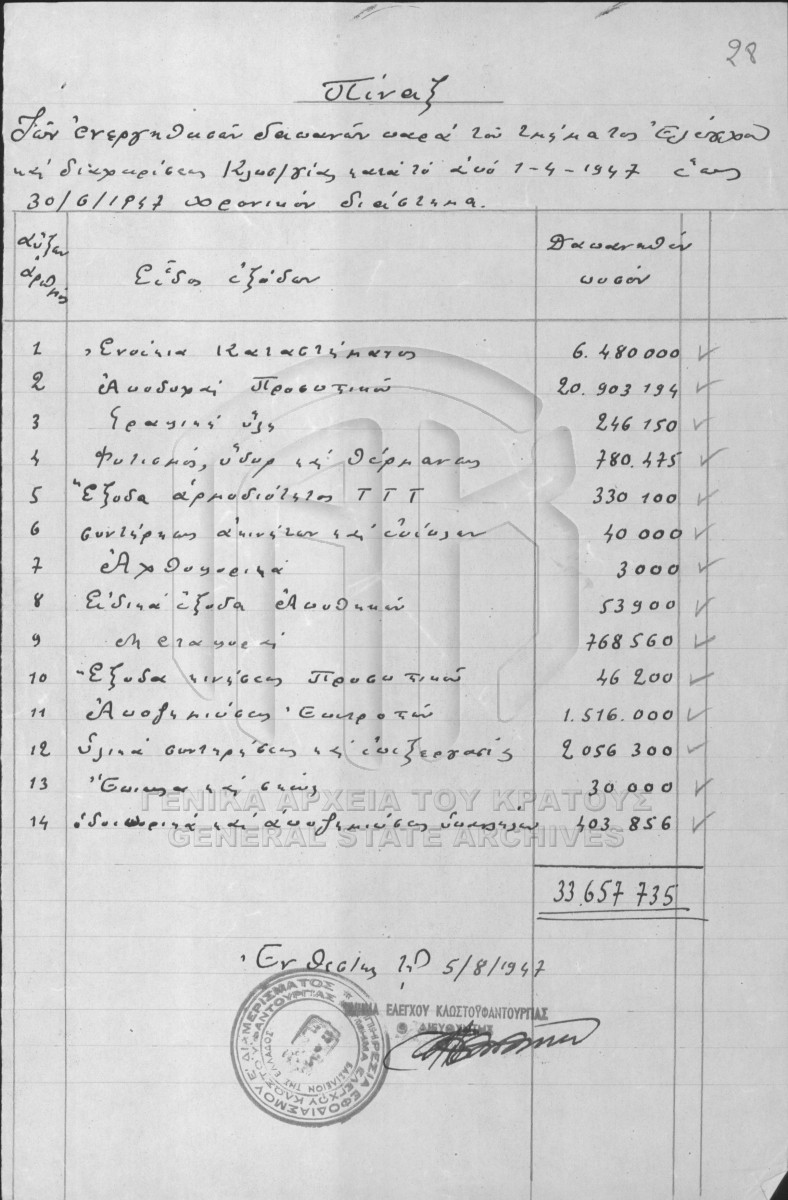 28
Πίναξ
Τῶν ἐνεργηθεισῶν δαπανῶν παρά τοῦ τμήματος Ἐλέγχου
καί διαχειρίσεως Κλωσ/γίας κατά τό ἀπό 1-4-1947 ἕως
30/6/1947 χρονικόν διάστημα.
αὔξων ἀριθμός
Εἶδος ἐξόδων
Δαπανηθέν ποσόν
1 Ἐνοίκια Καταστήματος 6.480000
2 Ἀποδοχαί Προσωπικοῦ 20.903194
3 Γραφική ὕλη 246150
4 Φωτισμός, ὕδωρ καί θέρμανσις 780.475
5 Ἔξοδα ἁρμοδιότητος Τ Τ Τ 330100
6 συντήρησις ἀκινήτων καί ἐπίπλων 40000
7 Ἀχθοφορικά 3000
8 Εἰδικά ἔξοδα Ἀποθηκῶν 53900
9 Μεταφοραί 768560
10 Ἔξοδα κινήσεως Προσωπικοῦ 46200
11 Ἀποζημιώσεις Ἐπιτροπῶν 1.516.000
12 Ὑλικά συντηρήσεως καί ἐπεξεργασίας 2056300
13 Ἔπιπλα καί σκεύη 30000
14 ὁδοιπορικά καί ἀποζημιώσεις ὑπαλλήλων 403856
ΓΕΝΙΚΑ ΑΡΧΕΙΑ ΤΟΥ ΚΡΑΤΟΥΣ
GENERAL STATE ARCHIVES
33.657735
Ἐν Θεσ/κῃ τῇ 5/8/1947
ΤΜΗΜΑ ΕΛΕΓΧΟΥ ΚΛΩΣΤΟΫΦΑΝΤΟΥΡΓΙΑΣ
Ο ΔΙΕΥΘΥΝΤΗΣ
ΒΑΣΙΛΕΙΟΝ ΤΗΣ ΕΛΛΑΔΟΣ